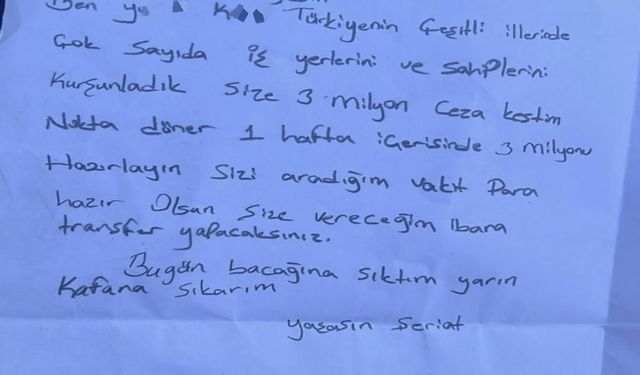 Ben Türkiyenin Çeşitli illerinde
Çok Sayıda iş yerlerini ve Sahiplerini
Kurşunladık Size 3 milyon Ceza kestim
Nokta döner 1 hafta içerisinde 3 milyonu
Hazırlayın Sizi aradığım vakit Para
hazır Olsun Size vereceğim Ibana
transfer yapacaksınız.
Bugün bacağına sıktım yarın
Kafana Sıkarım
Yaşasın Şeriat